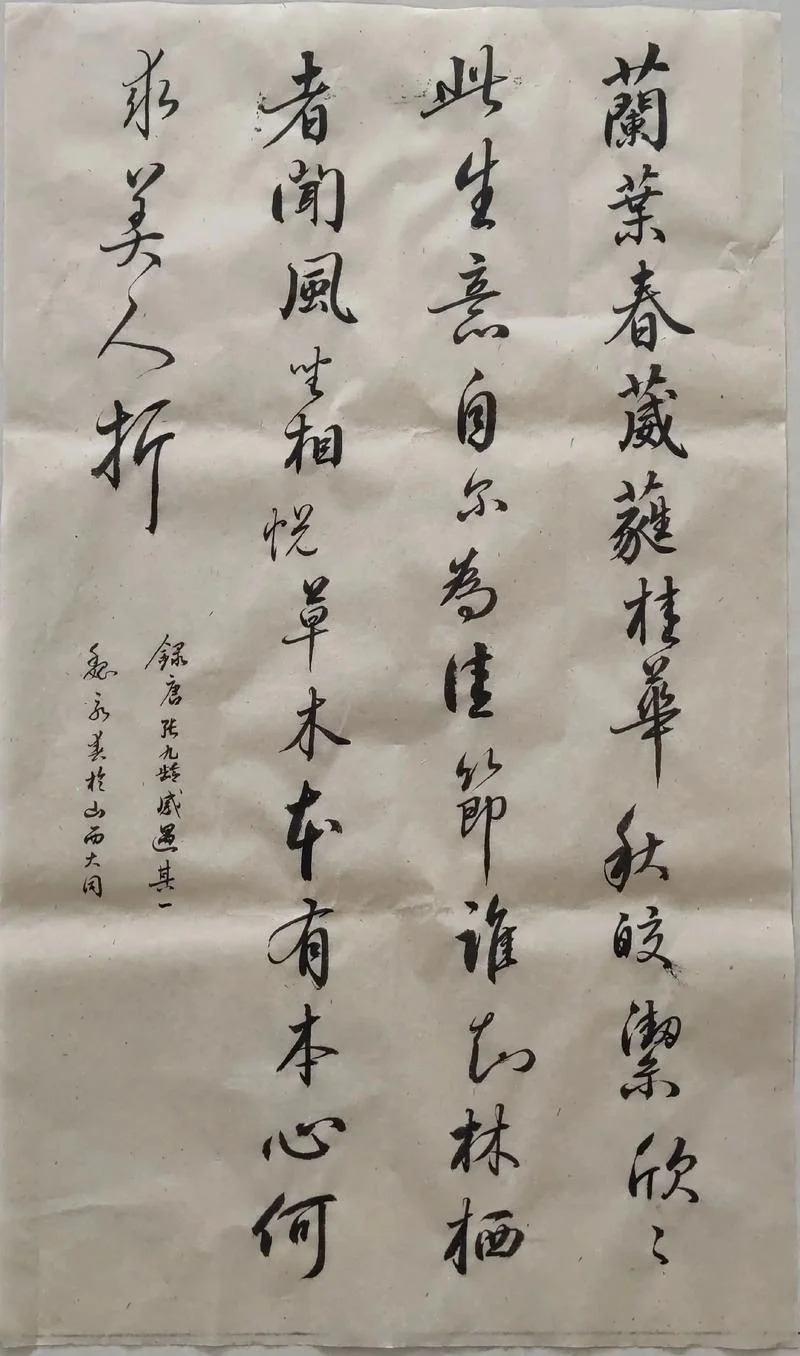 蘭葉春葳蕤桂華秋皎潔欣〻
此生意自尔為佳節誰知林栖
者聞風坐相悅草木本有本心何
求美人折
錄唐張九龄感遇其一
於山西大同